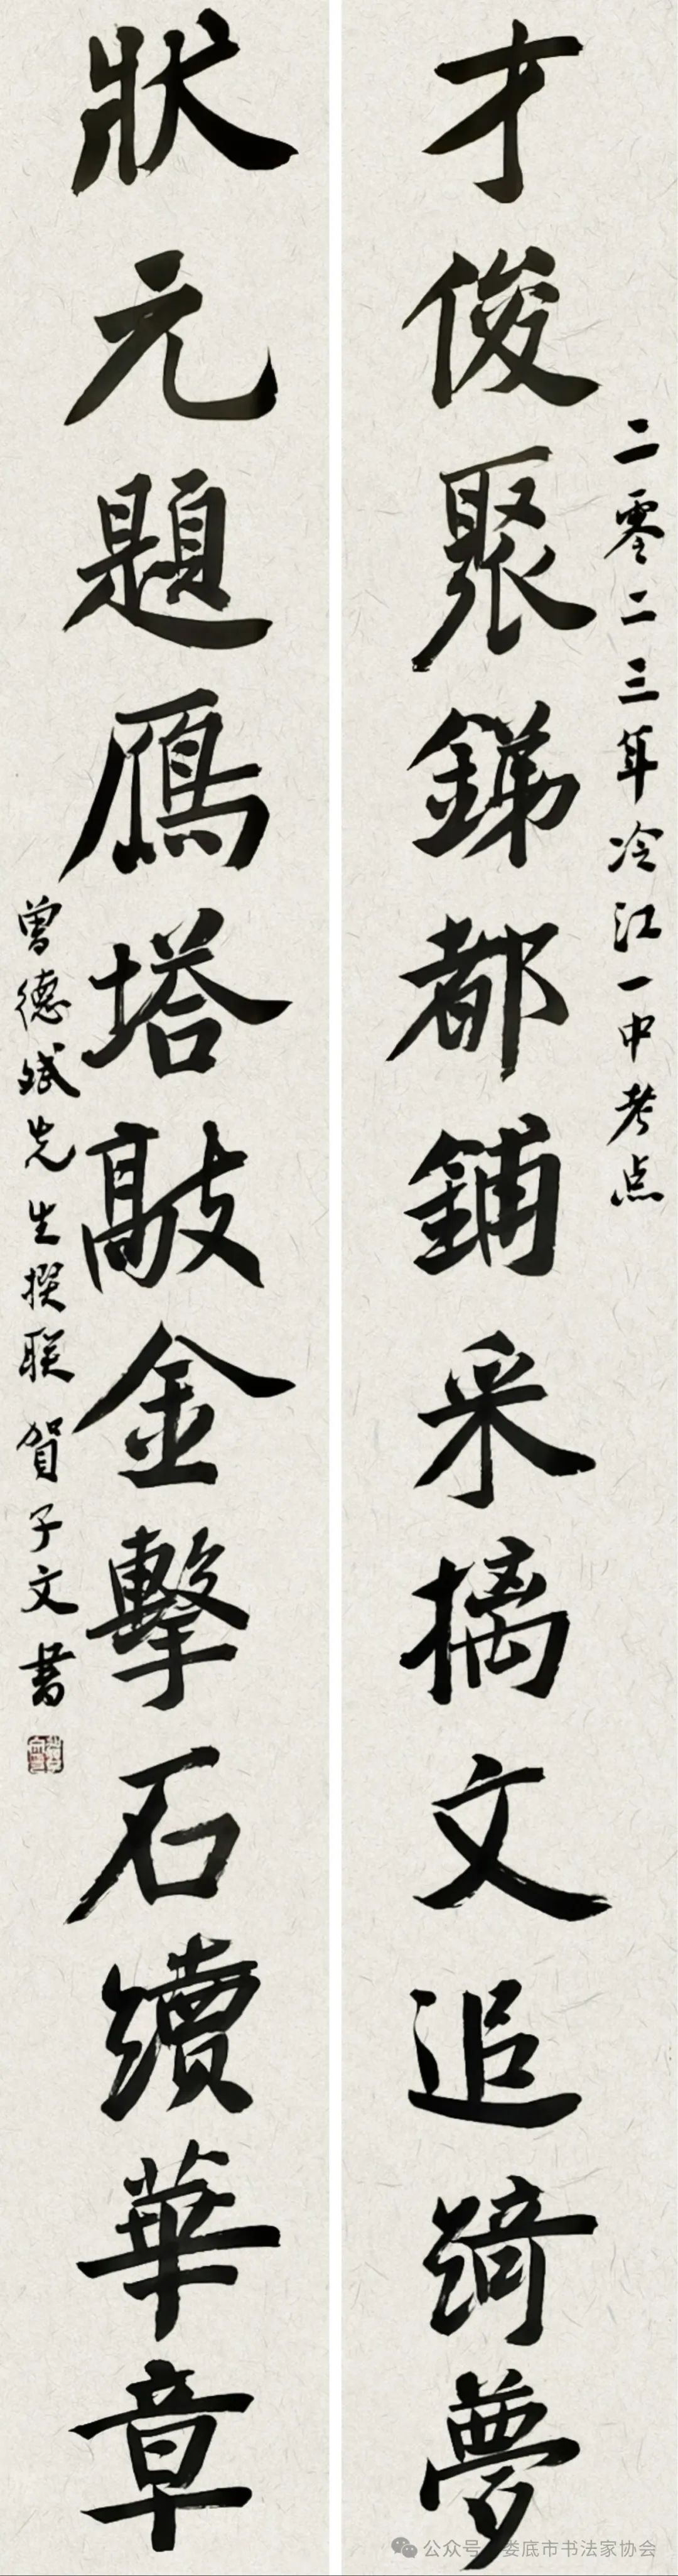 二零二三年冷江一中考点
才俊聚銻都鋪采摛文追綺夢
狀元題鴈塔敲金擊石續華章
曾德斌先生撰联 賀子文書
公众号 娄底市书法家协会